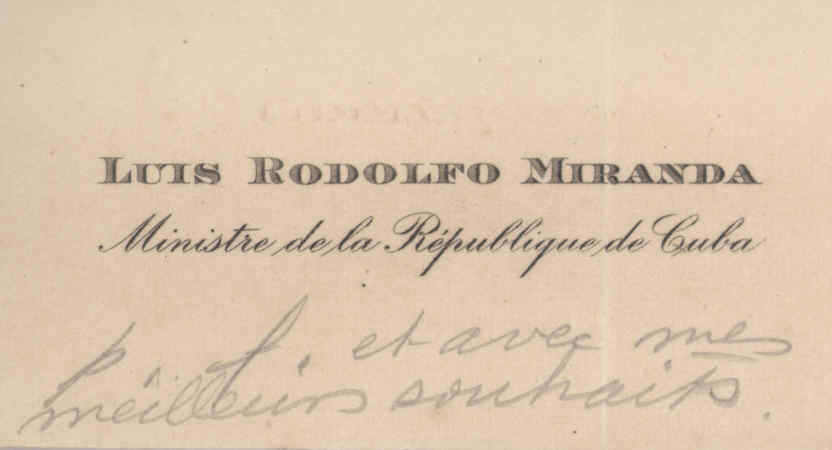 LUIS RODOLFO MIRANDA
Ministre de la République de Cuba
p. f. et avec mes
meilleurs souhaits.